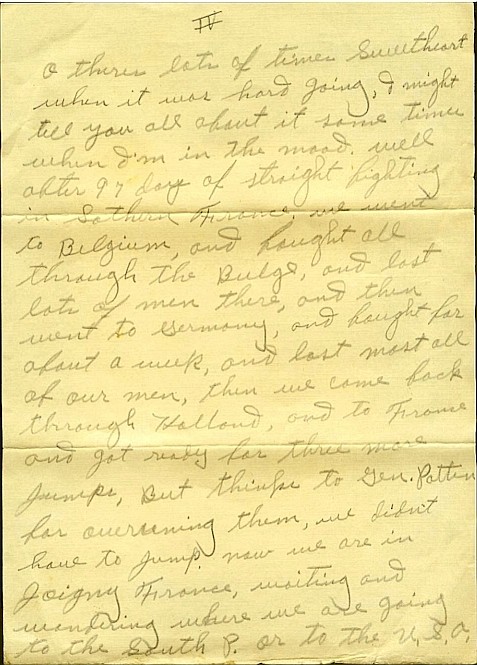 IV
O theres lots of times Sweetheart
when it was hard going, I might
tell you all about it some time
when I'm in the mood. well
after 97 day of straight fighting
in Sothern France. we went
to Belgium, and faught all
through the Bulge, and lost
lots of men there, and then
went to Germany, and faught for
about a week, and lost most all
of our men, then we came back
through Holland, and to France
and got ready for three more
Jumps, But thinks to Gen. Patten
for overruning them, we didn't
have to jump. now we are in
Joigny France, waiting and
wondering where we are going
to the South P. or to the U.S.A.